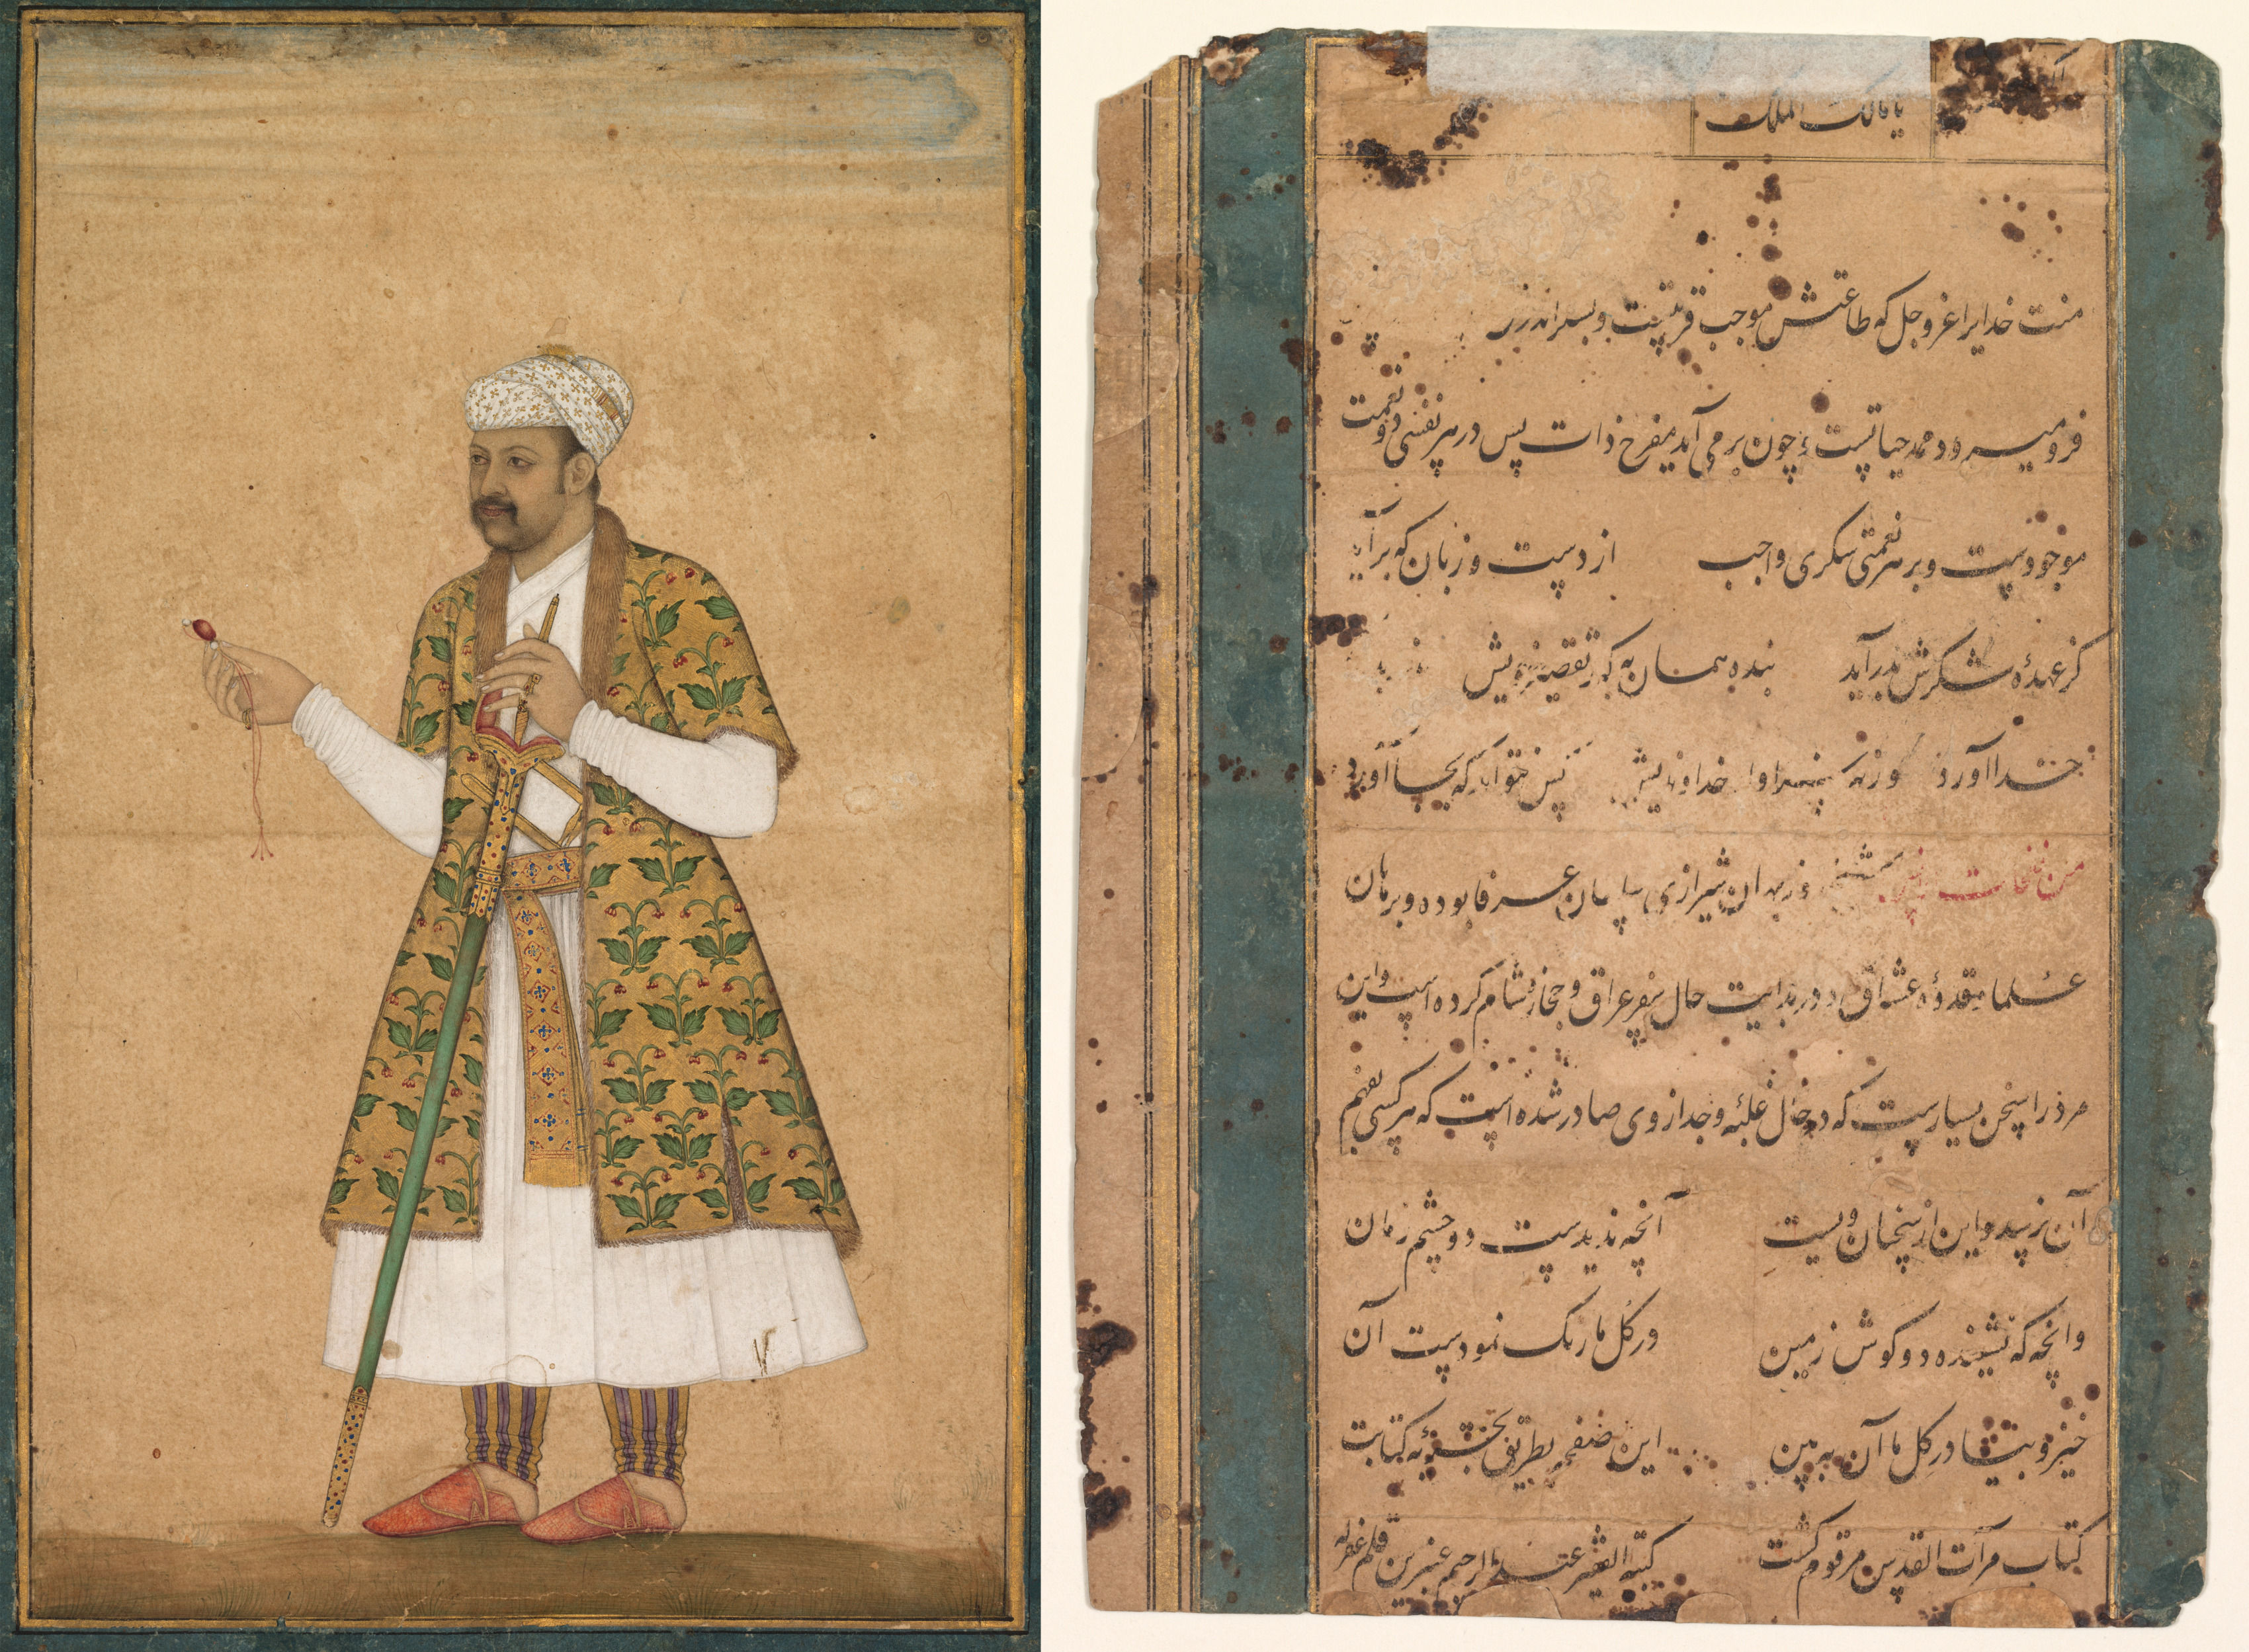 یا مالک الملک
منت خدایرا عز و جل که طاعتش موجب قربتست و بشکر اندرش
فرو میرود ممد حیاتست و چون بر می آید مفرح ذات پس در هر نفسی دو نعمت
موجودست و بر هر نعمتی شکری واجب از دست و زبان که برآید
کز عهدهٔ شکرش بدر آید بنده همان به که ز تقصیر خویش
خدا آورد ورنه سزاوار خداوندیش کس نتواند که بجا آورد
من نفحات شیخ روزبهان شیرازی سلطان عرفا بوده و برهان
علما قدوهٔ عشاق در بدایت حال سفر عراق و حجاز و شام کرده است و این
مرد را سخن بسیارست که در حال غلبهٔ وجد از وی صادر شده است که هر کسی بفهم
آن نرسد و این از سخنان ویست آنچه ندیدست دو چشم زمان
وانچه که نشنیده دو گوش زمین در گل ما رنگ نمودست آن
خیز و بیا در گل ما آن ببین این صفحه بطریق تجربه کتابت
کتاب مرآت القدس مرقوم گشت کتبه الفقیر عبد الرحیم عنبرین قلم غفر له